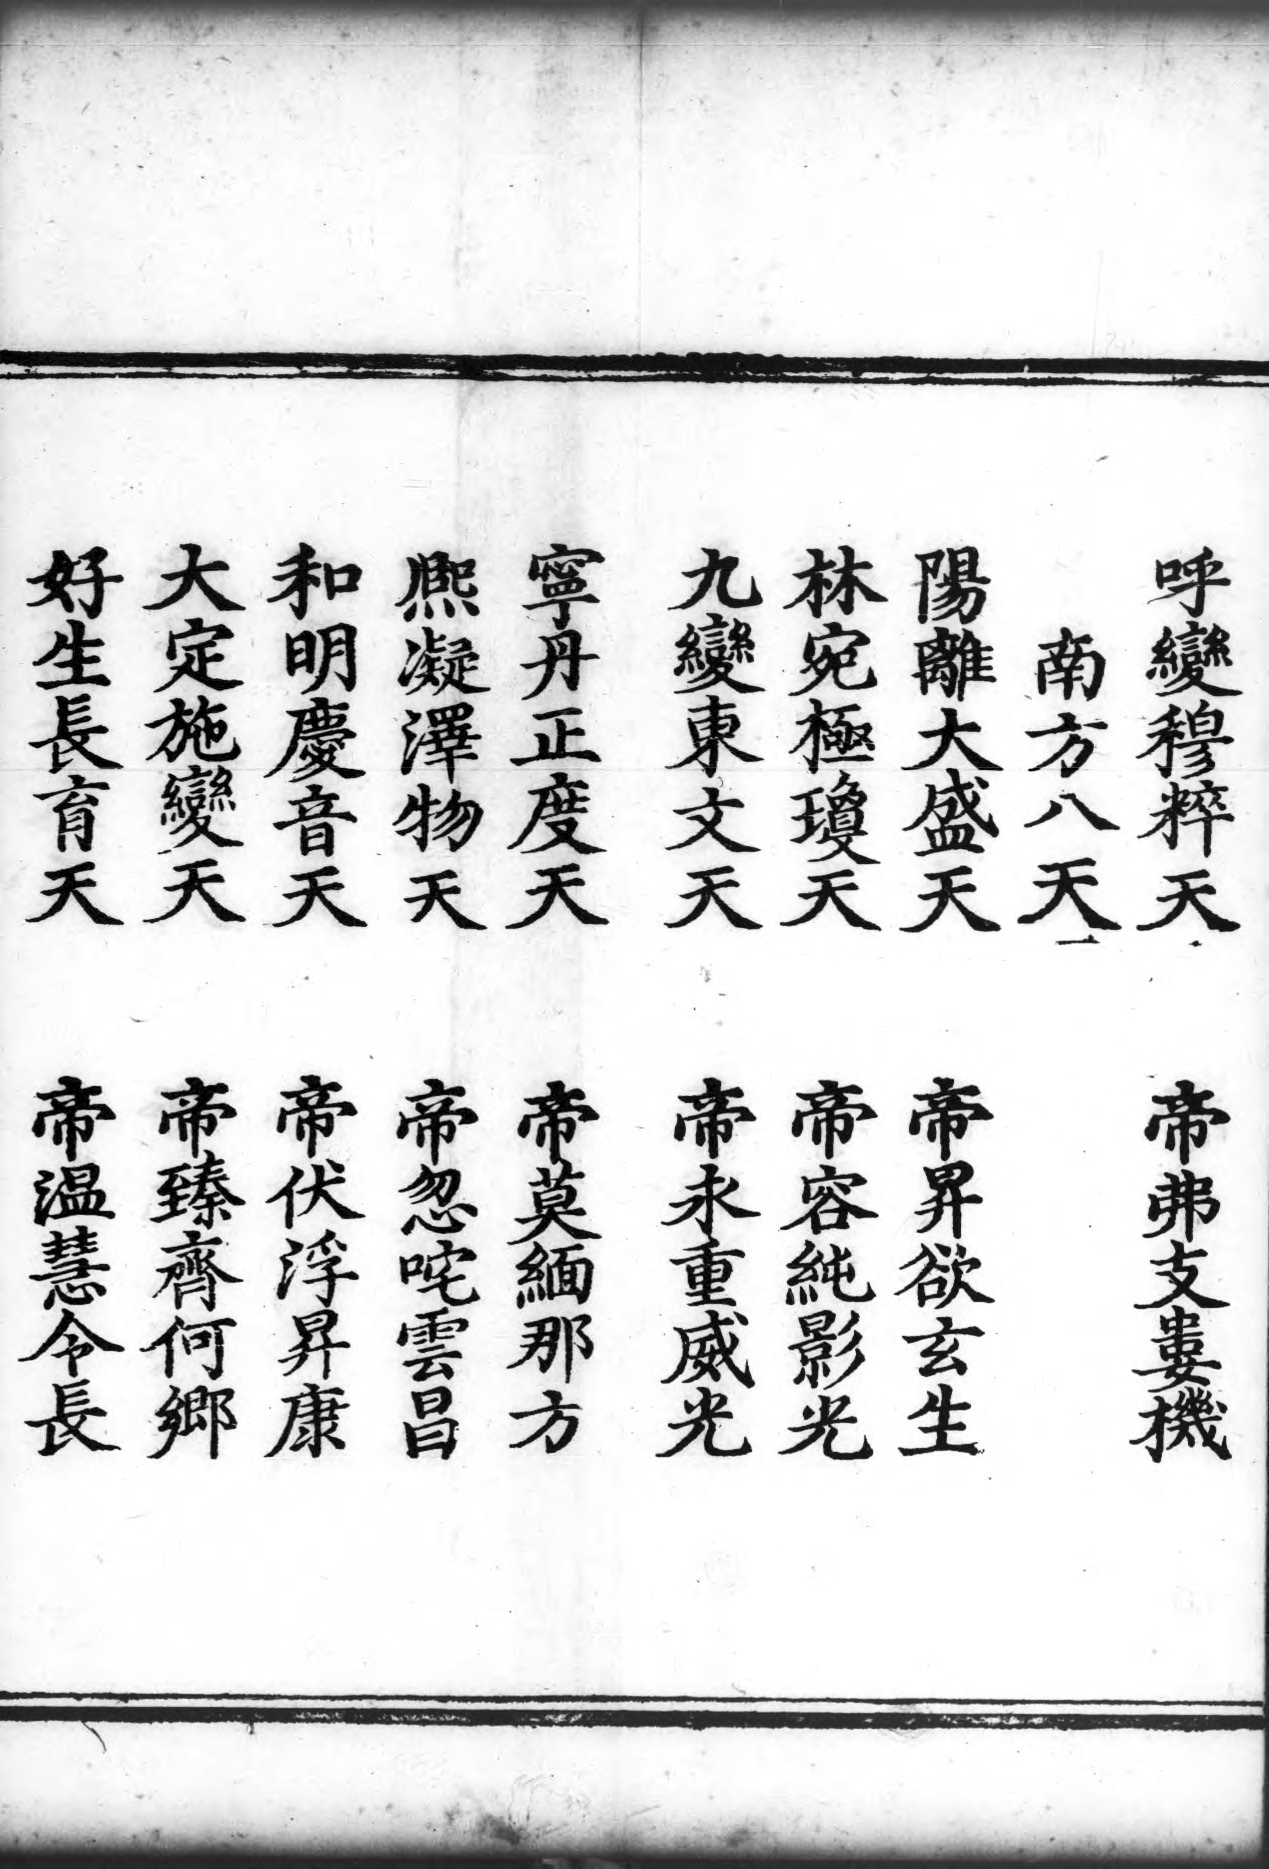 呼變穆粹天　帝弗支婁機
南方八天
陽離大盛天　帝昇欲玄生
林宛極瓊天　帝容純影光
九變東文天　帝永重威光
寧丹正度天　帝莫緬那方
熙凝澤物天　帝忽咤雲昌
和明慶音天　帝伏浮昇康
大定施變天　帝臻齊何鄉
好生長育天　帝溫慧令長